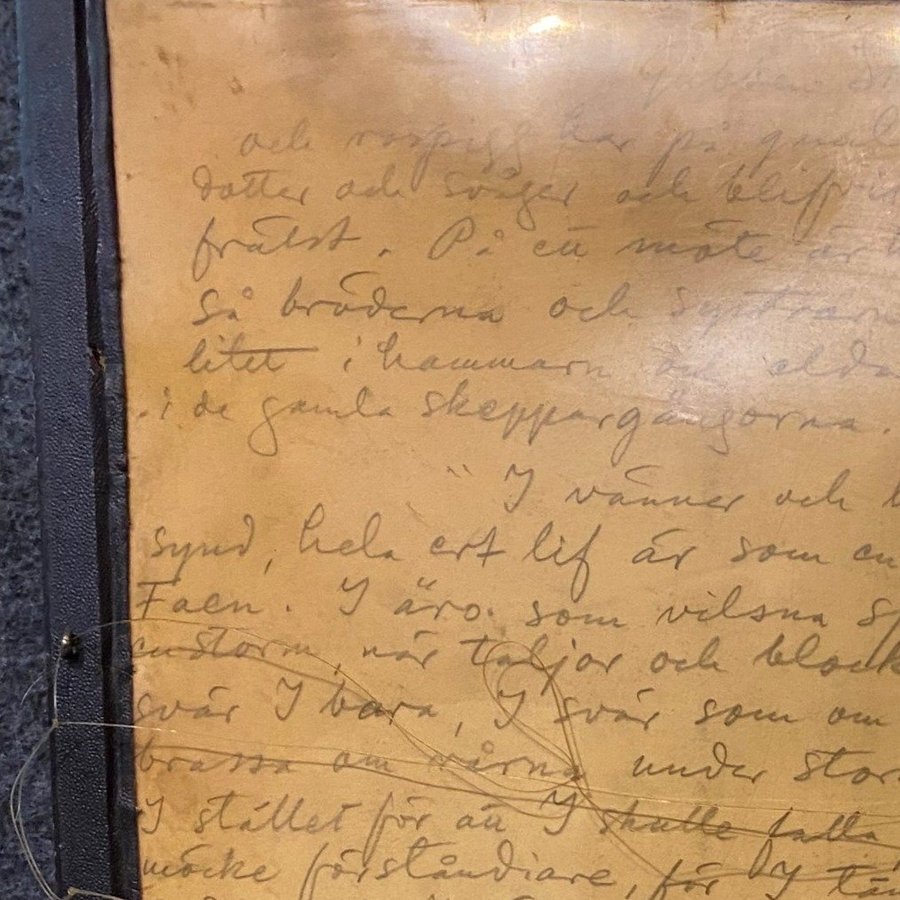 och rospigg har på
dotter och svåger och blifvit
frälst. På ett möte är
så bröderna och systrarna
litet i hammarn och elda
i de gamla skeppargångorna.
"I vänner och
synd, hela ert lif är som en
Faen. I äro som vilsna
när taljor och block
svär I bara, I svär som om
brassa om rårna under stor
I stället för att I skulle falla
möcke förståndiare, för I